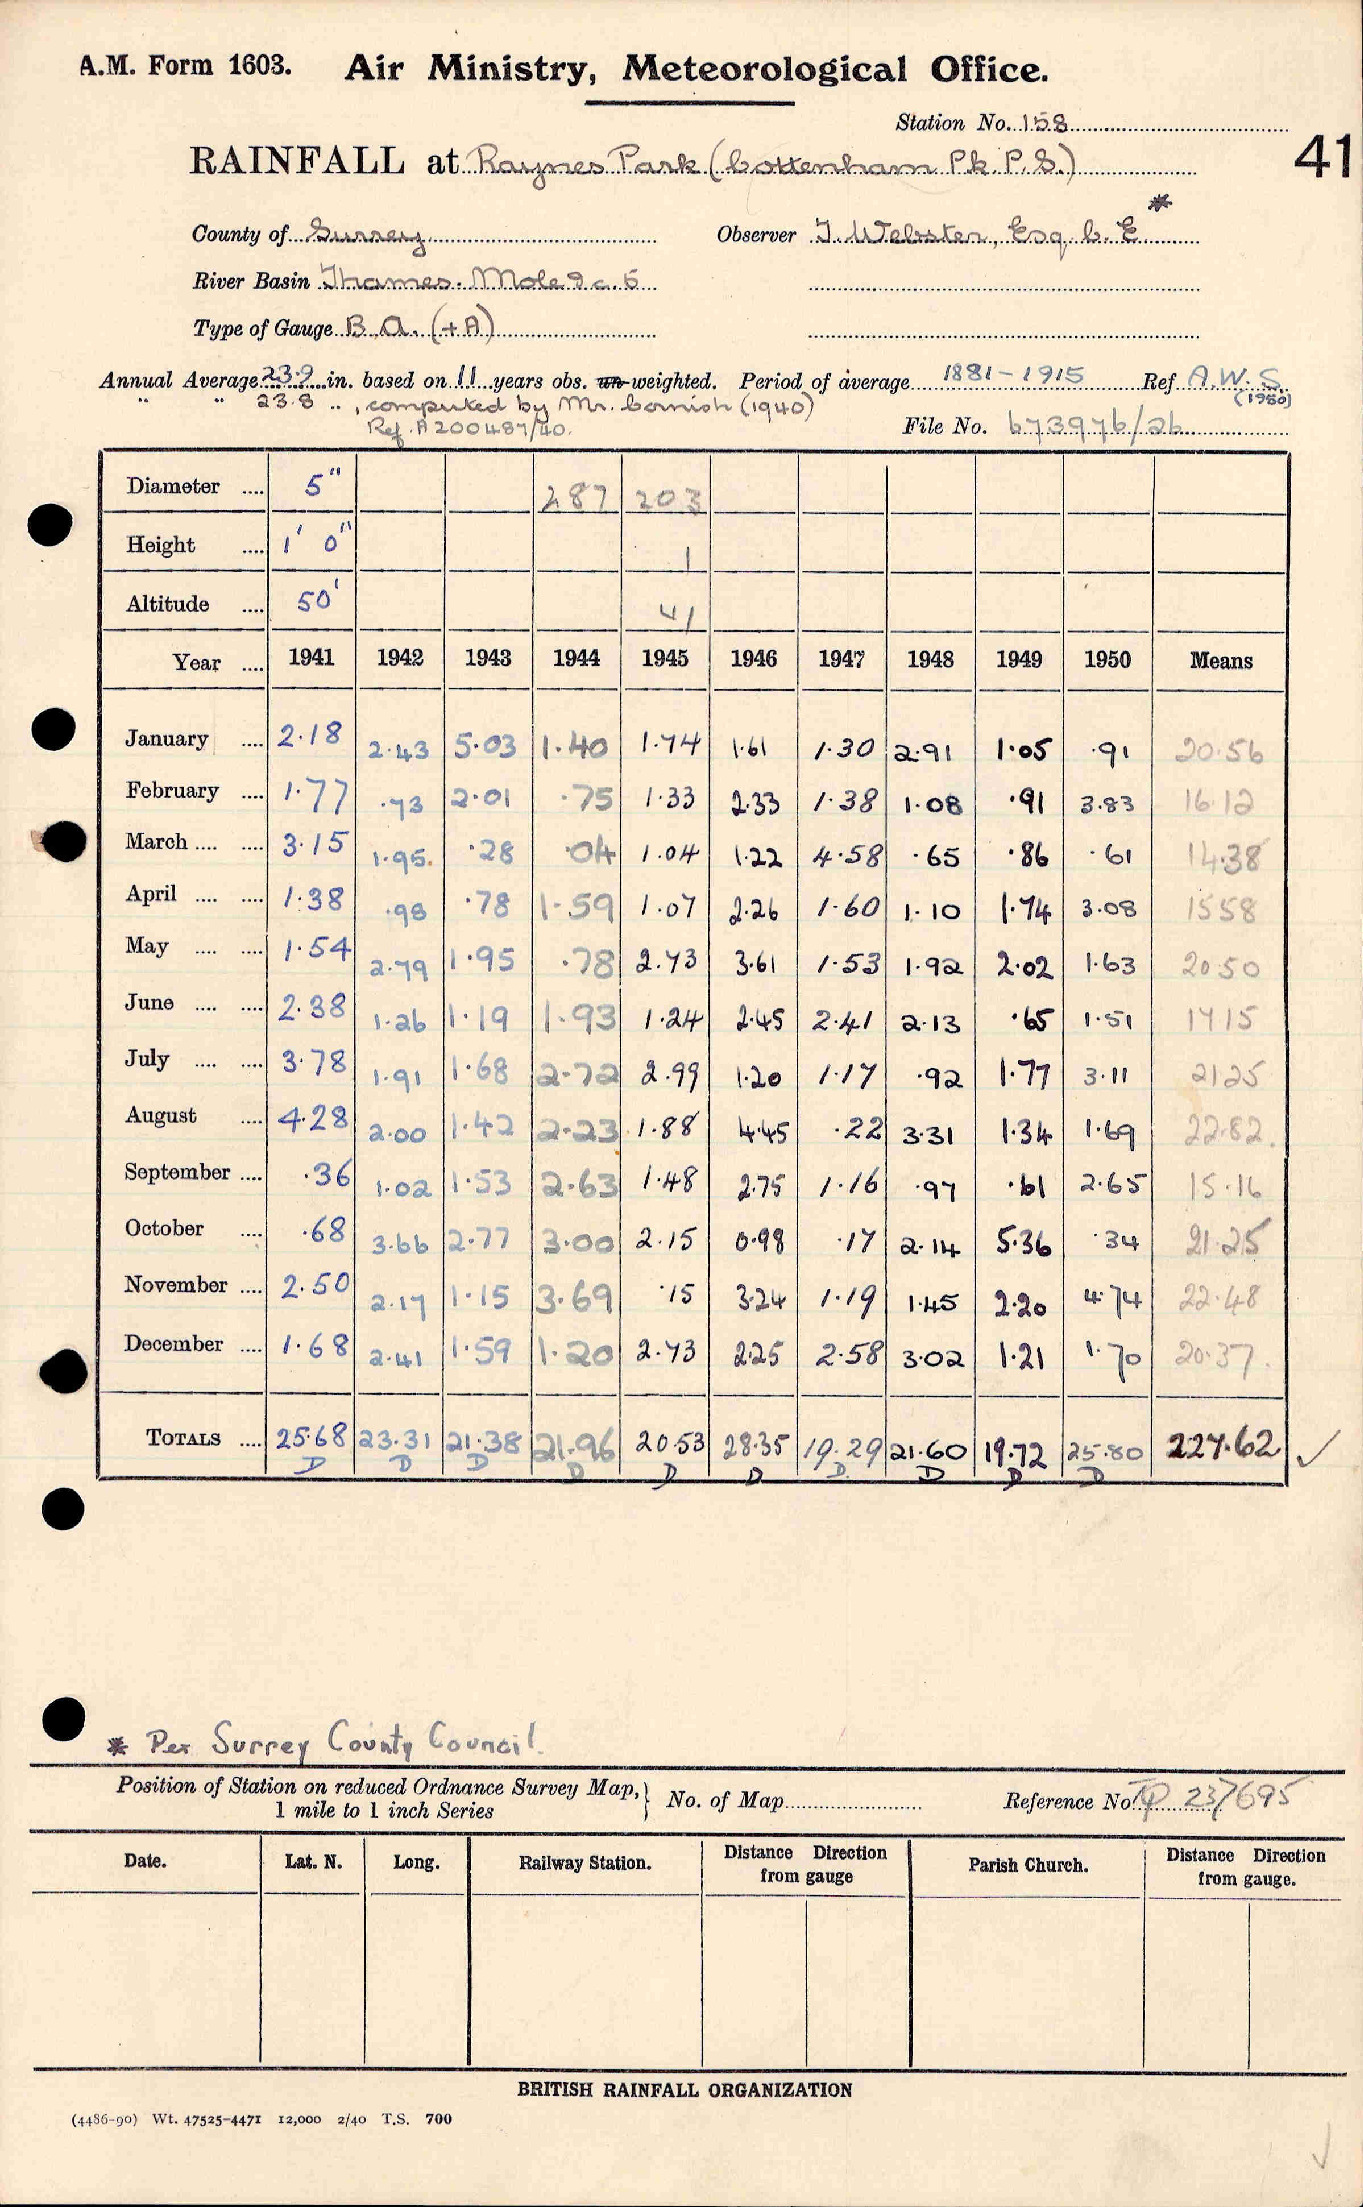 A.M. Form 1603. Air Ministry, Meteorological Office.
Station No. 158
41
RAINFALL at Raynes Park (Cottenham Pk. P.S.)
County of Surrey Observer J. Webster, Esq. C.E. *
River Basin Thames. Mole &c. 5
Type of Gauge B.A. (+A)
Annual Average 23.9 in. based on 11 years obs. un-weighted. Period of average 1881-1915 Ref A.W.S. (1950)
" " 23.8 ", computed by Mr. Cornish (1940)
Ref. A200487/40. File No. 673976/26
Diameter .... 5" 287 203
Height .... 1' 0" 1
Altitude .... 50' 41
Year .... 1941 1942 1943 1944 1945 1946 1947 1948 1949 1950 Means
January .... 2.18 2.43 5.03 1.40 1.74 1.61 1.30 2.91 1.05 .91 20.56
February .... 1.77 .73 2.01 .75 1.33 2.33 1.38 1.08 .91 3.83 16.12
March .... .... 3.15 1.95 .28 .04 1.04 1.22 4.58 .65 .86 .61 14.38
April .... .... 1.38 .98 .78 1.59 1.07 2.26 1.60 1.10 1.74 3.08 15 58
May .... .... 1.54 2.79 1.95 .78 2.73 3.61 1.53 1.92 2.02 1.63 20 50
June .... .... 2.38 1.26 1.19 1.93 1.24 2.45 2.41 2.13 .65 1.51 17 15
July .... .... 3.78 1.91 1.68 2.72 2.99 1.20 1.17 .92 1.77 3.11 21 25
August .... 4.28 2.00 1.42 2.23 1.88 4.45 .22 3.31 1.34 1.69 22.82
September .... .36 1.02 1.53 2.63 1.48 2.75 1.16 .97 .61 2.65 15.16
October .... .68 3.66 2.77 3.00 2.15 0.98 .17 2.14 5.36 .34 21.25
November .... 2.50 2.17 1.15 3.69 .15 3.24 1.19 1.45 2.20 4.74 22.48
December .... 1.68 2.41 1.59 1.20 2.73 2.25 2.58 3.02 1.21 1.70 20.37
TOTALS .... 25.68 23.31 21.38 21.96 20.53 28.35 19.29 21.60 19.72 25.80 227.62 ✓
D D D D D D D D D D
* Per Surrey County Council.
Position of Station on reduced Ordnance Survey Map, 1 mile to 1 inch Series } No. of Map Reference No. TQ 237695
Date. Lat. N. Long. Railway Station. Distance Direction from gauge Parish Church. Distance Direction from gauge.
BRITISH RAINFALL ORGANIZATION
(4486-90) Wt. 47525-4471 12,000 2/40 T.S. 700